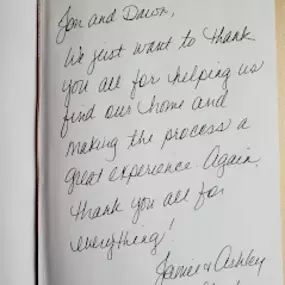 Jon and Dawn,
We just want to thank
you all for helping us
find our home and
making the process a
great experience. Again,
thank you all for
everything!
James & Ashley